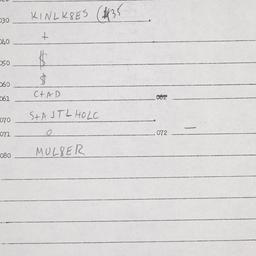 030 KINLK8ES ($35
040 +
050 $
060 $
061 C+AD 062 —
070 S+AJTLHOLC
071 0 .072 —
080 MUL8ER